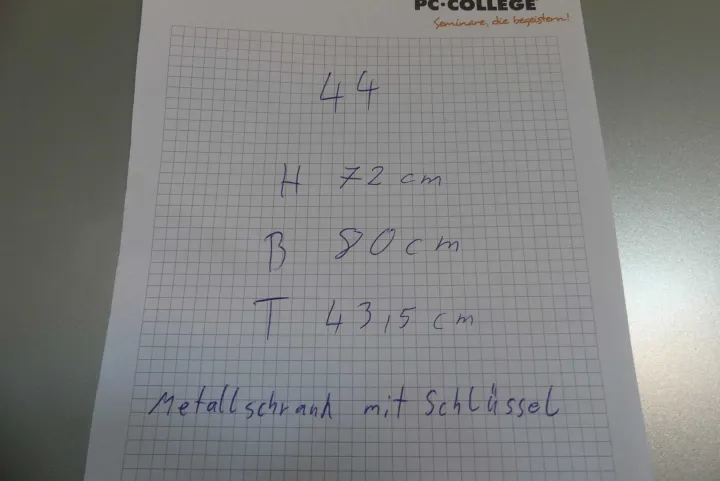 PC-COLLEGE
Seminare, die begeistern!
44
H 72 cm
B 80 cm
T 43,5 cm
Metallschrank mit Schlüssel